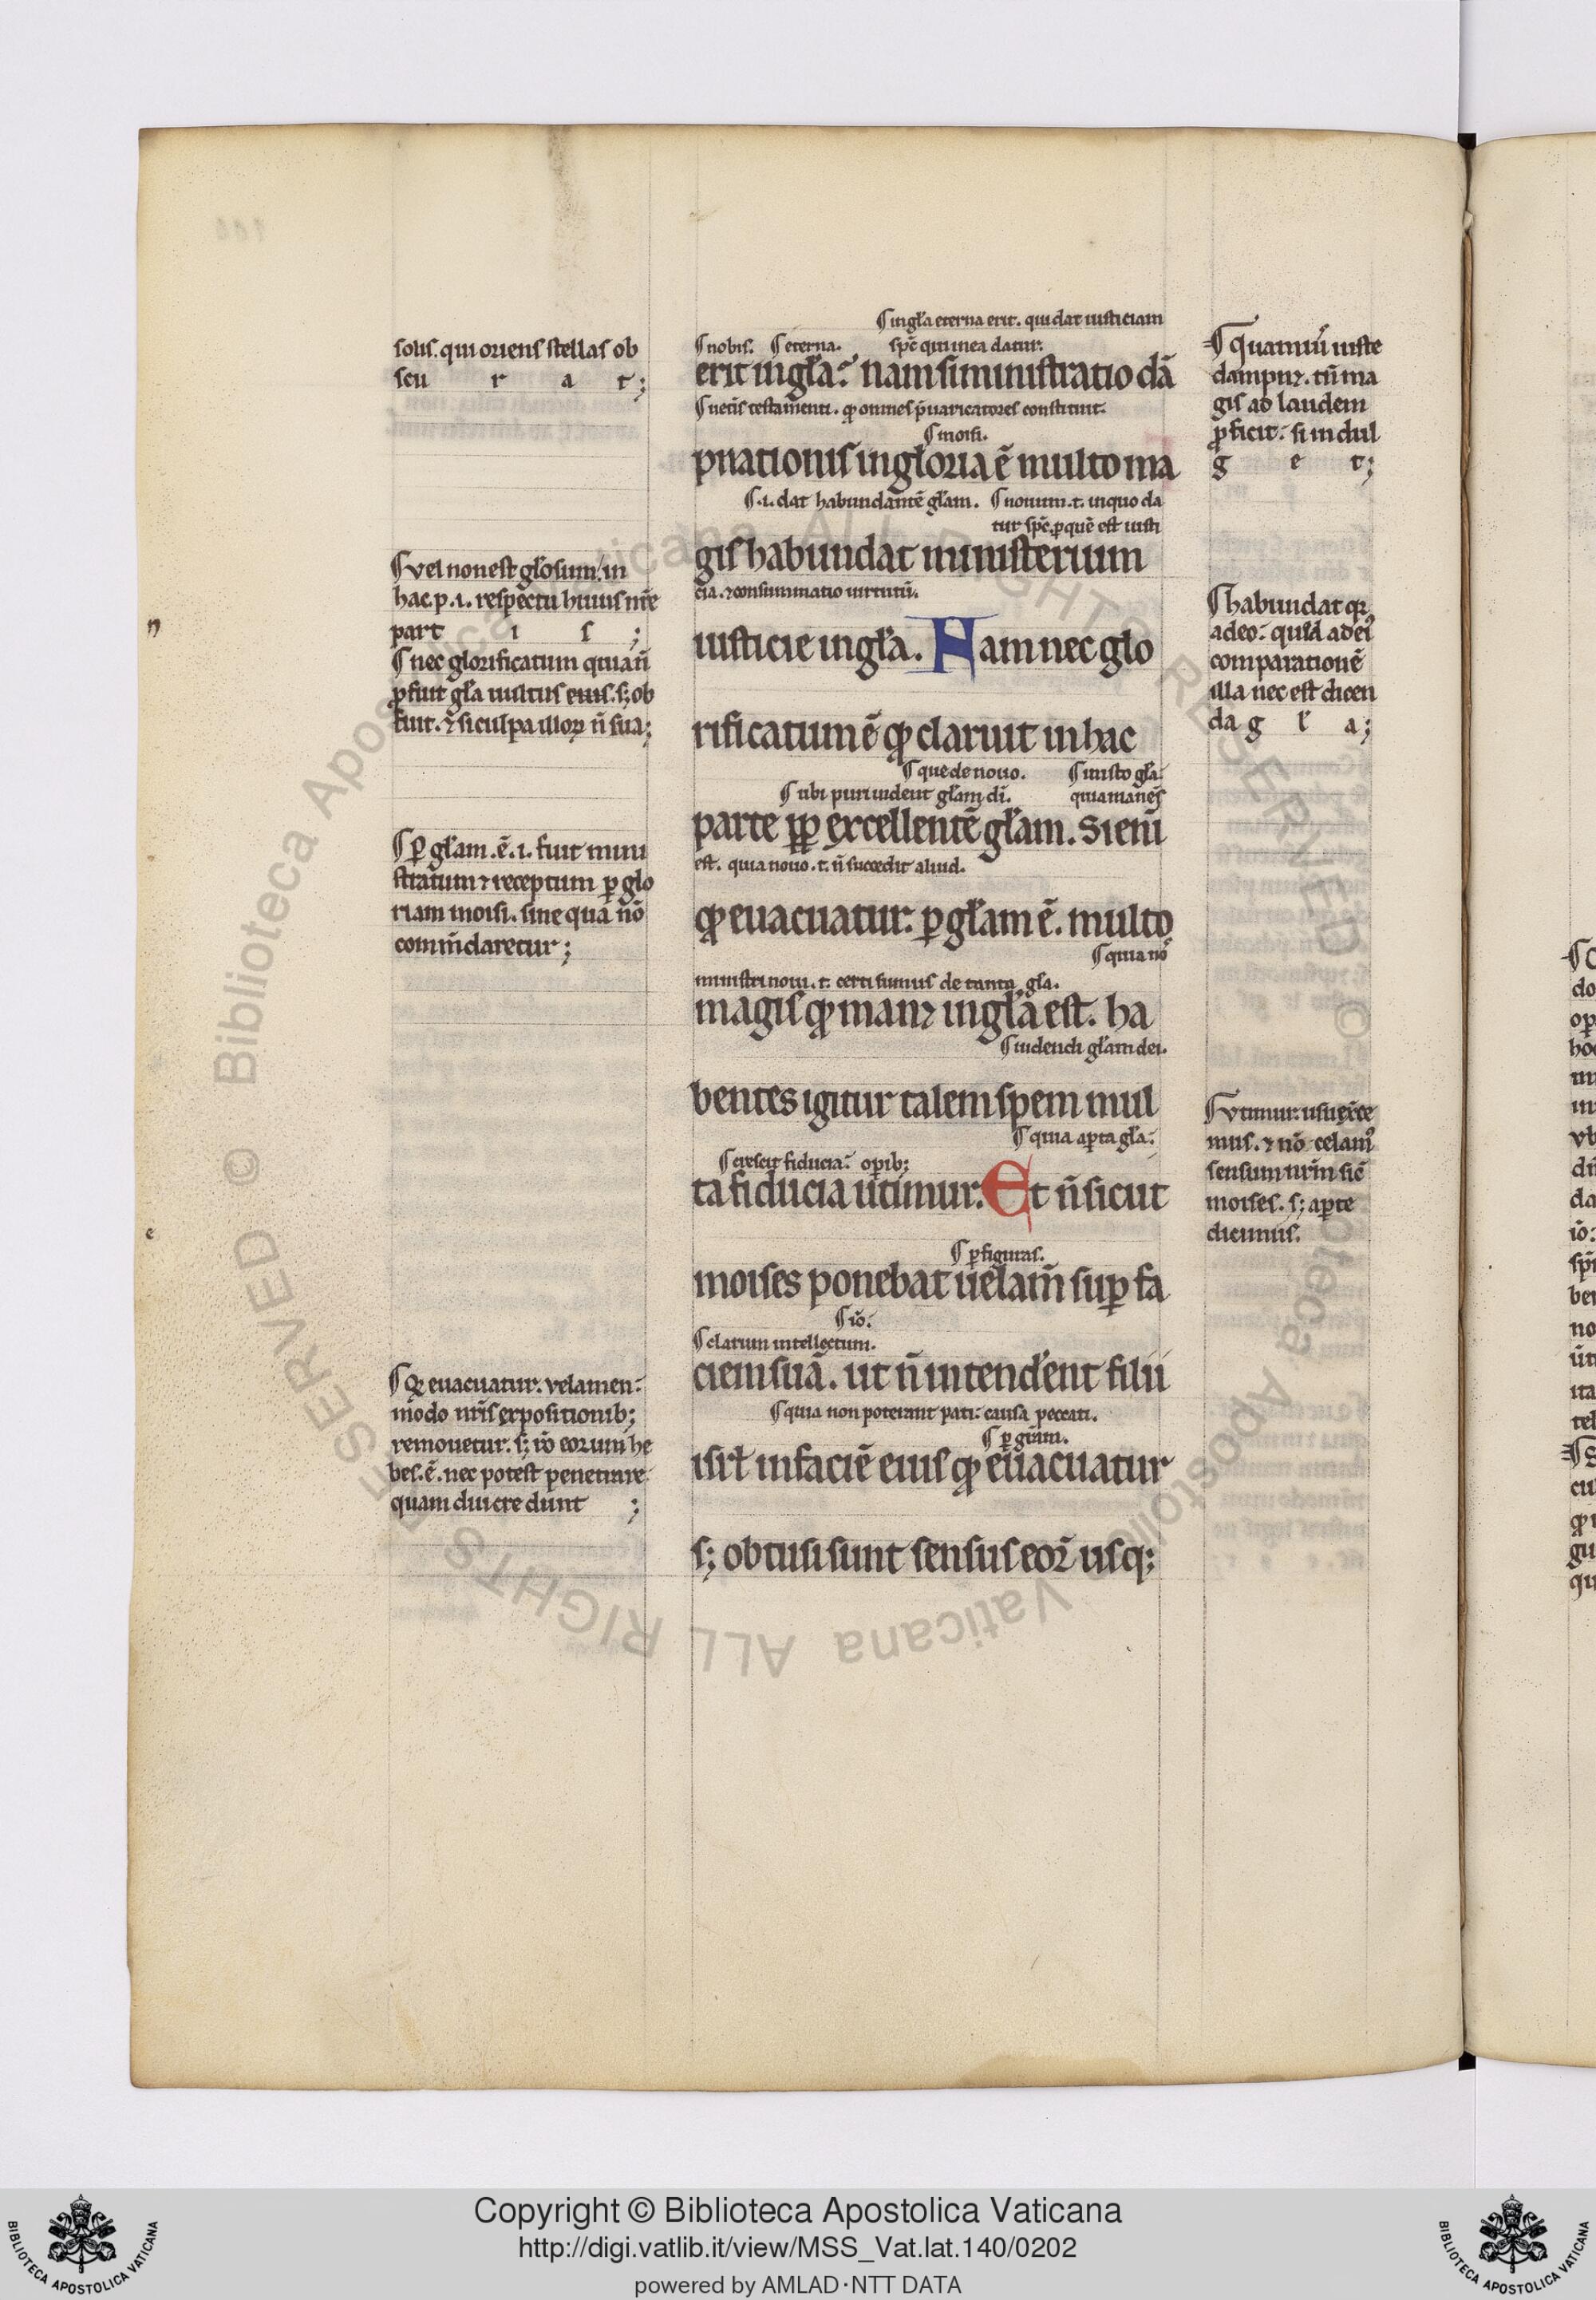 solis. qui oriens stellas ob
scu r a t;
¶ vel non est glosum. in
hac .p. .i. respectu huius nr̄e
part i s ;
¶ nec glorificatum quan̄
ꝓfuit gl̄a uultus eius. s; ob
fuit. ⁊ si culpa illoꝝ n̄ sua;
¶ ꝑ gl̄am .ē. .i. fuit mini
stratum ⁊ receptum ꝑ glo
riam moisi. sine qua nō
com̄daretur ;
euacuatur. velamen.
modo nr̄is expositionib;
remouetur. s; iō eorum he
bes .ē. nec potest penetrare
quam diu credunt ;
¶ in gl̄a eterna erit. qui dat iusticiam
¶ nobis. ¶ eterna. sp̄c qui in ea datur.
erit in gl̄a. nam si ministratio dā
¶ uet̄is testamenti. ꝙ omnes p̄uaricatores constituit.
¶ moisi.
pnationis in gloria ē multo ma
¶ .i. dat habundantē gl̄am. ¶ nouum .t. in quo da
tur sp̄c ꝑ quē est iusti
gis habundat ministerium
cia. ⁊ consummatio uirtutū.
iusticie in gl̄a. Nam nec glo
rificatum ē ꝙ claruit in hac
¶ que de nouo. ¶ iusto gl̄a.
¶ ubi puri uident gl̄am di. quia manēs
parte ꝓꝑ excellentē gl̄am. Si eni
est. quia nouo .t. n̄ succedit aliud.
ꝙ euacuatur. ꝑ gl̄am ē. multo
¶ quia nō
ministri noui .t. certi sumus de tanta gl̄a.
magis ꝙ manꝫ in gl̄a est. ha
¶ uidendi gl̄am dei.
bentes igitur talem spem mul
¶ quia aꝑta gl̄a.
¶ crescit fiducia. oꝑib;
ta fiducia utimur. Et n̄ sicut
¶ ꝑ figuras.
moises ponebat uelam̄ suꝑ fa
¶ iō.
¶ clarum intellectum.
ciem suā. ut n̄ intend̄ent filii
¶ quia non poterant pati. causa peccati.
¶ ꝑ gr̄am.
isrl̄ in faciē eius ꝙ euacuatur
s; obtusi sunt sensus eoꝝ usq;
¶ quamuis iuste
dampnꝫ. tn̄ ma
gis ad laudem
ꝓficit. si indul
g e t;
¶ habundat
adeo. quid ad ei
comparationē
illa nec est dicen
da g l̄ a;
¶ vtimur. usu exerce
mus. ⁊ nō celam᷒
sensum nr̄m sic̄
moises. s; aꝑte
dicimus.
n
e
Copyright © Biblioteca Apostolica Vaticana
http://digi.vatlib.it/view/MSS_Vat.lat.140/0202
powered by AMLAD·NTT DATA
BIBLIOTECA APOSTOLICA VATICANA
BIBLIOTECA APOSTOLICA VATICANA